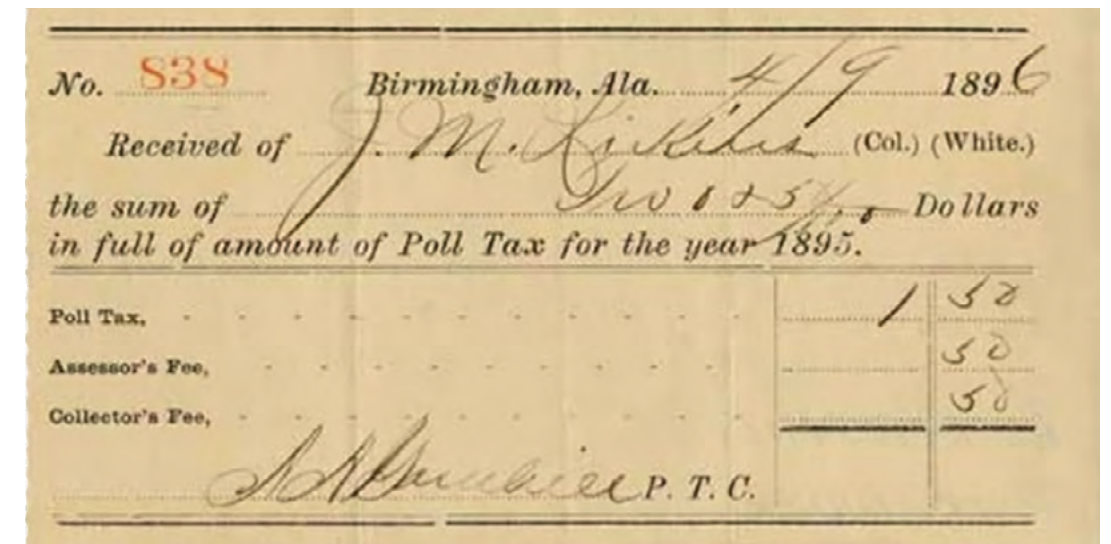 No. 838 Birmingham, Ala. 4/9 1896
Received of J. M. (Col.) (White.)
the sum of Two & 50/100 Dollars
in full of amount of Poll Tax for the year 1895.
Poll Tax, - - - - - - - - - - 1 50
Assessor's Fee, - - - - - - - - - 50
Collector's Fee, - - - - - - - - - 50
P. T. C.